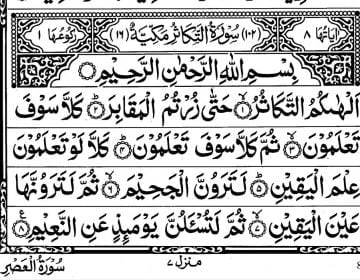 اٰيَاتُهَا ٨ (١٠٢) سُوْرَةُ التَّكَاثُرِ مَكِّيَّةٌ (١٦) رُكُوْعُهَا ١
بِسْمِ اللّٰهِ الرَّحْمٰنِ الرَّحِيْمِ
اَلْهٰىكُمُ التَّكَاثُرُ ۙ﴿١﴾ حَتّٰى زُرْتُمُ الْمَقَابِرَ ؕ﴿٢﴾ كَلَّا سَوْفَ
تَعْلَمُوْنَ ۙ﴿٣﴾ ثُمَّ كَلَّا سَوْفَ تَعْلَمُوْنَ ؕ﴿٤﴾ كَلَّا لَوْ تَعْلَمُوْنَ
عِلْمَ الْيَقِيْنِ ؕ﴿٥﴾ لَتَرَوُنَّ الْجَحِيْمَ ۙ﴿٦﴾ ثُمَّ لَتَرَوُنَّهَا
عَيْنَ الْيَقِيْنِ ۙ﴿٧﴾ ثُمَّ لَتُسْـَٔلُنَّ يَوْمَئِذٍ عَنِ النَّعِيْمِ ﴿٨﴾
منزل ٧
سُوْرَةُ الْعَصْرِ